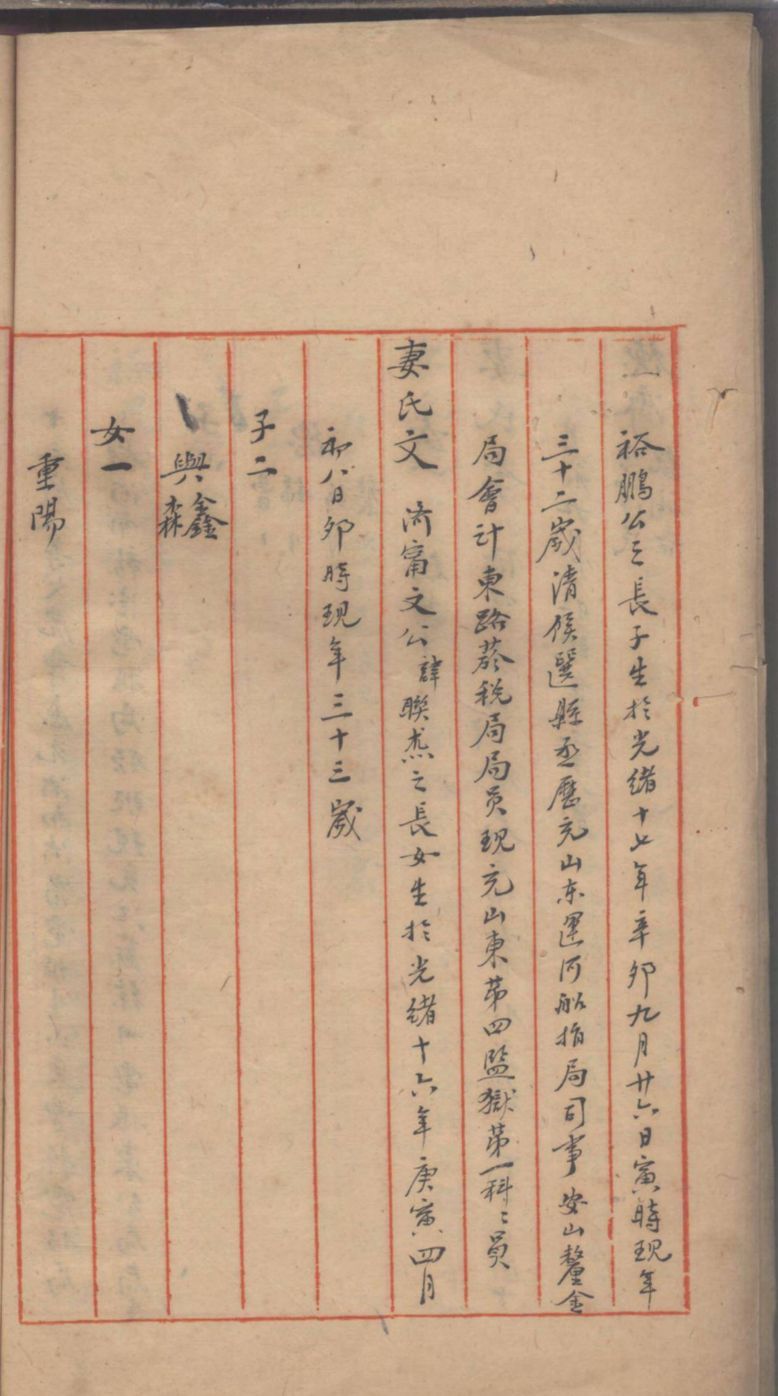 裕鵬公之長子生於光緒十七年辛卯九月廿六日寅時現年
三十二歲清候選縣丞歷充山东運河船捐局司事安山釐金
局會計東路菸税局局員現充山東第四監獄第一科科員
妻氏文 濟甯文公諱聯焘之長女生於光緒十六年庚寅四月
初八日卯時現年三十三歲
子二
鑫
與森
女一
重陽